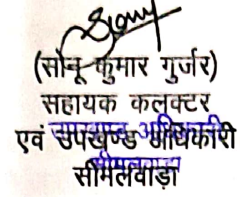 (सोनू कुमार गुर्जर)
सहायक कलक्टर
एवं उपखण्ड अधिकारी
सीमलवाड़ा